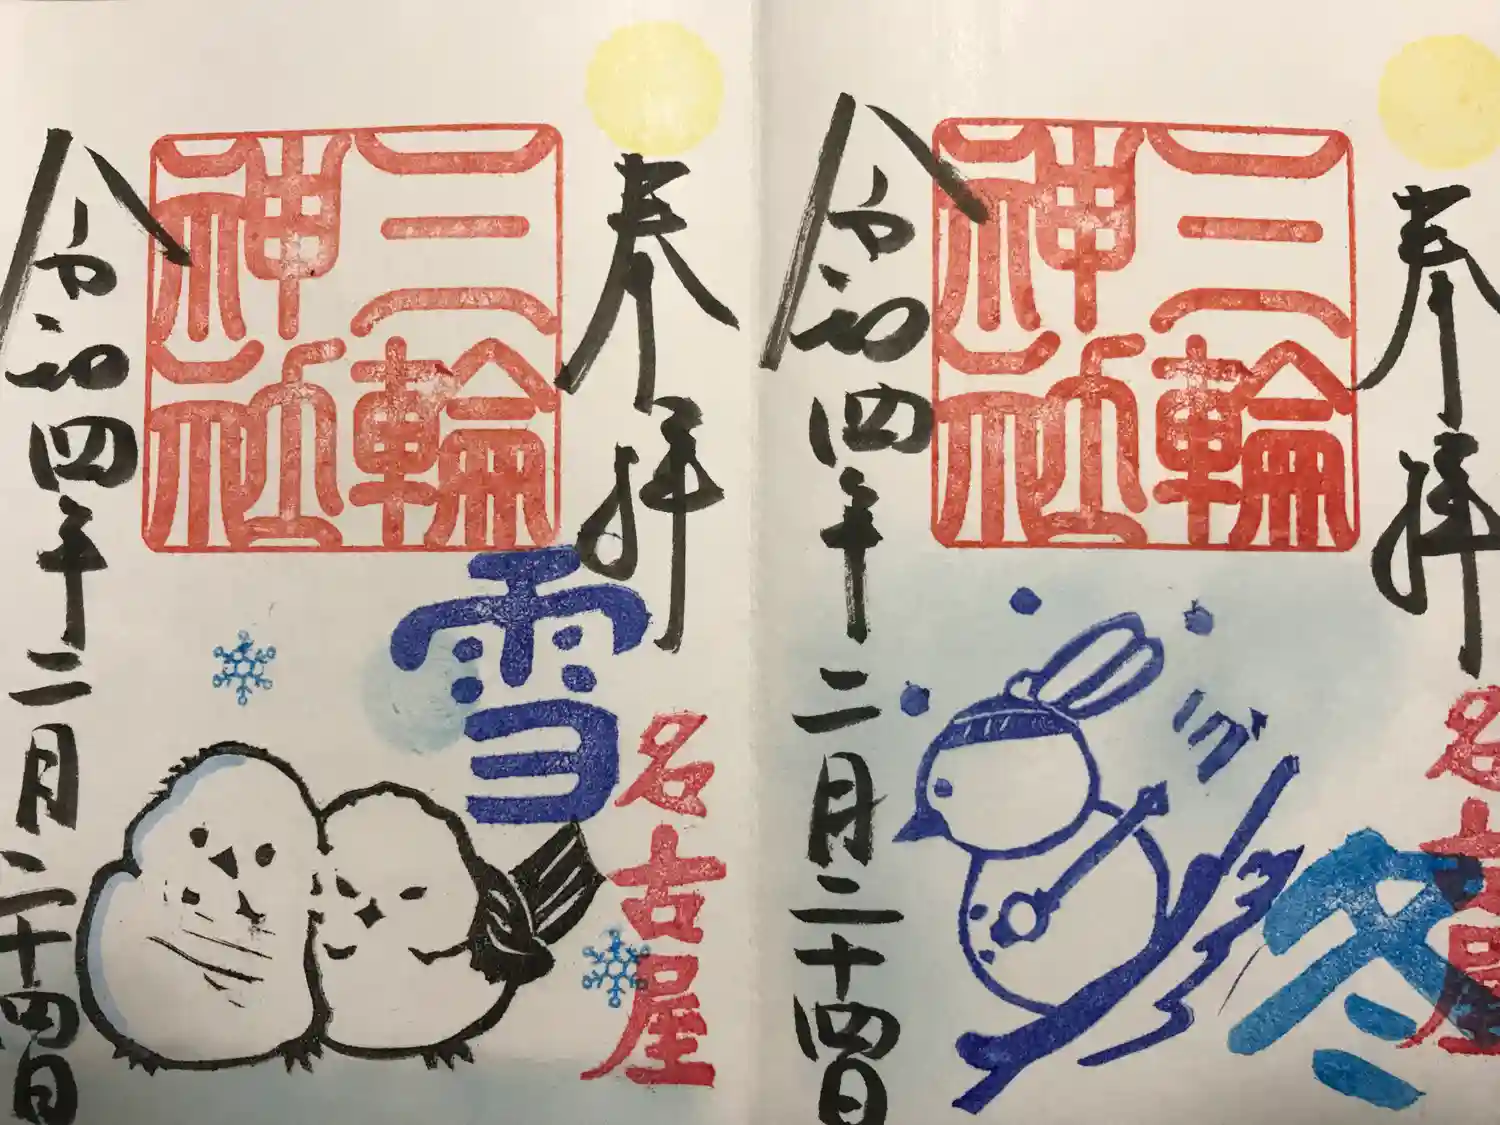 奉拝
名古屋
三輪
神社
冬
令和四年二月二十四日
奉拝
名古屋
三輪
神社
雪
令和四年二月二十四日